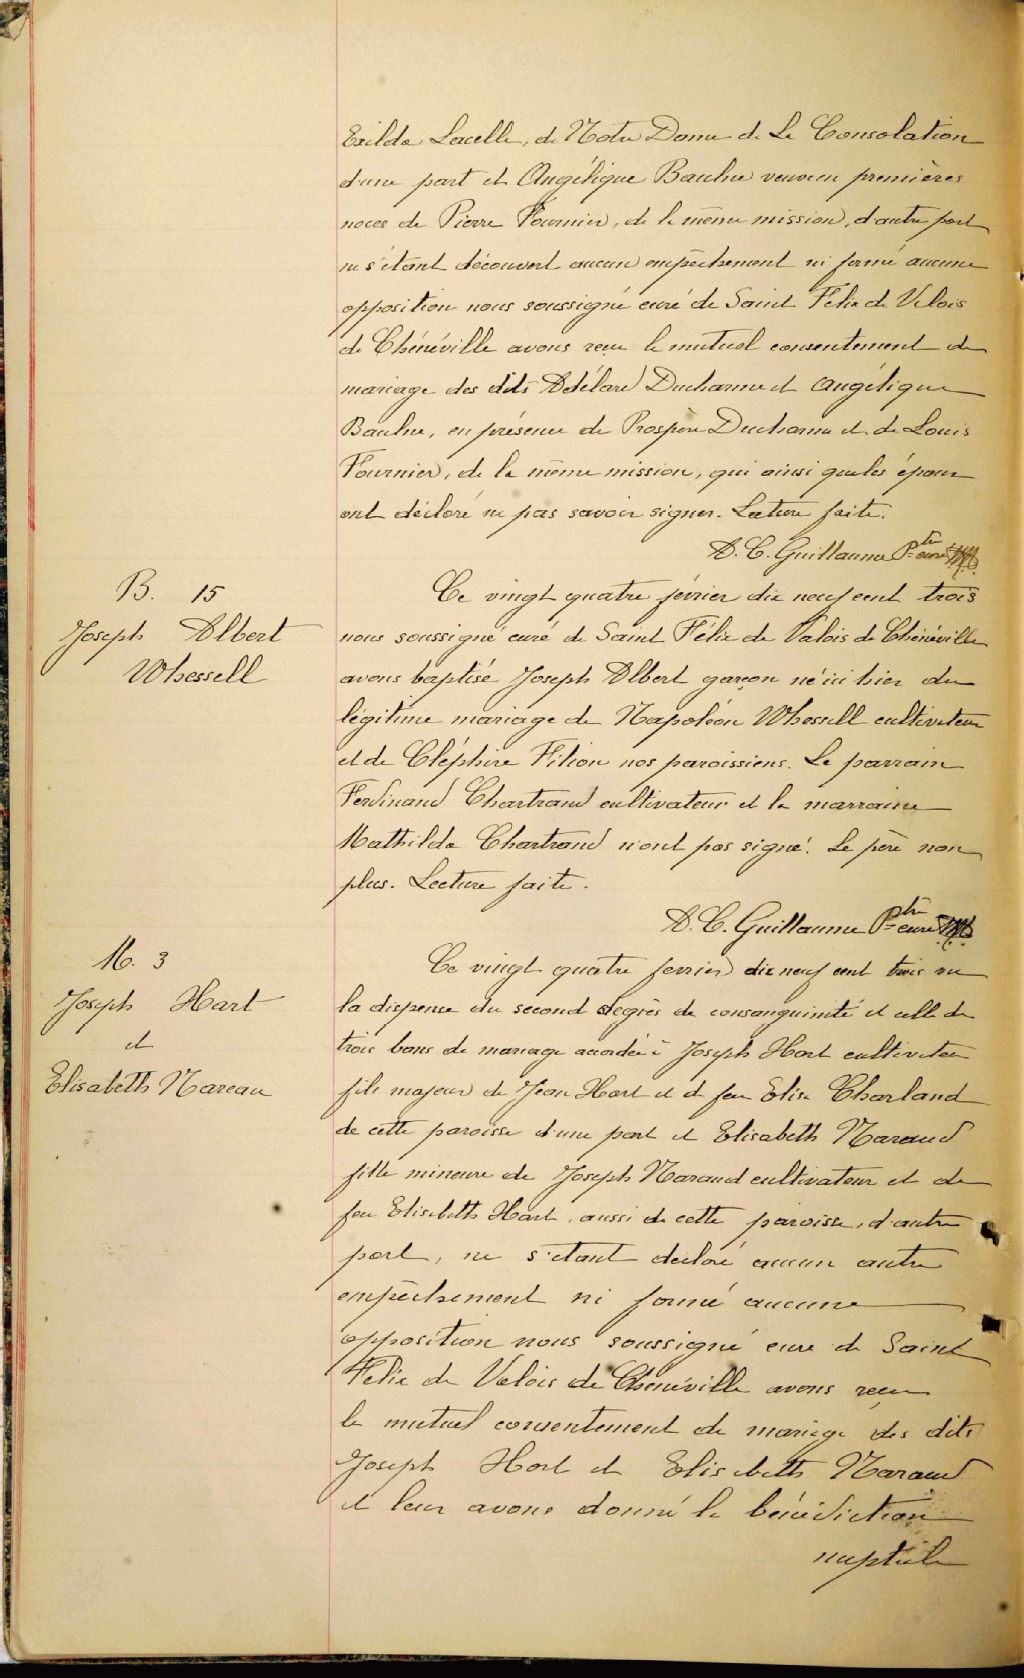 Exilda Lacelle, de Notre Dame de La Consolation
d'une part et Angélique Baulne veuve en premières
noces de Pierre Fournier, de la même mission, d'autre part
ne s'étant découvert aucun empêchement ni formé aucune
opposition nous soussigné curé de Saint Félix de Valois
de Chénéville avons reçu le mutuel consentement de
mariage des dits Adélard Ducharme et Angélique
Baulne, en présence de Prospère Ducharme et de Louis
Fournier, de la même mission, qui ainsi que les époux
ont déclaré ne pas savoir signer. Lecture faite.
A. C. Guillaume Ptre curé
B. 15
Joseph Albert
Whessell
Ce vingt quatre février dix neuf cent trois
nous soussigné curé de Saint Félix de Valois de Chénéville
avons baptisé Joseph Albert garçon né ici hier du
légitime mariage de Napoléon Whessell cultivateur
et de Cléphire Filion nos paroissiens. Le parrain
Ferdinand Chartrand cultivateur et la marraine
Mathilda Chartrand n'ont pas signé. Le père non
plus. Lecture faite.
A. C. Guillaume Ptre curé
M. 3
Joseph Hart
et
Elisabeth Nareau
Ce vingt quatre fevrier dix neuf cent trois vu
la dispense du second degrès de consanguinité et celle de
trois bans de mariage accordée à Joseph Hart cultivateur
fils majeur de Jean Hart et de feu Elise Charland
de cette paroisse d'une part et Elisabeth Naraud
fille mineure de Joseph Naraud cultivateur et de
feu Elisabeth Hart, aussi de cette paroisse, d'autre
part, ne s'étant déclaré aucun autre
empêchement ni formé aucune
opposition nous soussigné curé de Saint
Felix de Valois de Chénéville avons reçu
le mutuel consentement de mariage des dits
Joseph Hart et Elisabeth Naraud
et leur avons donné la bénédiction
nuptiale